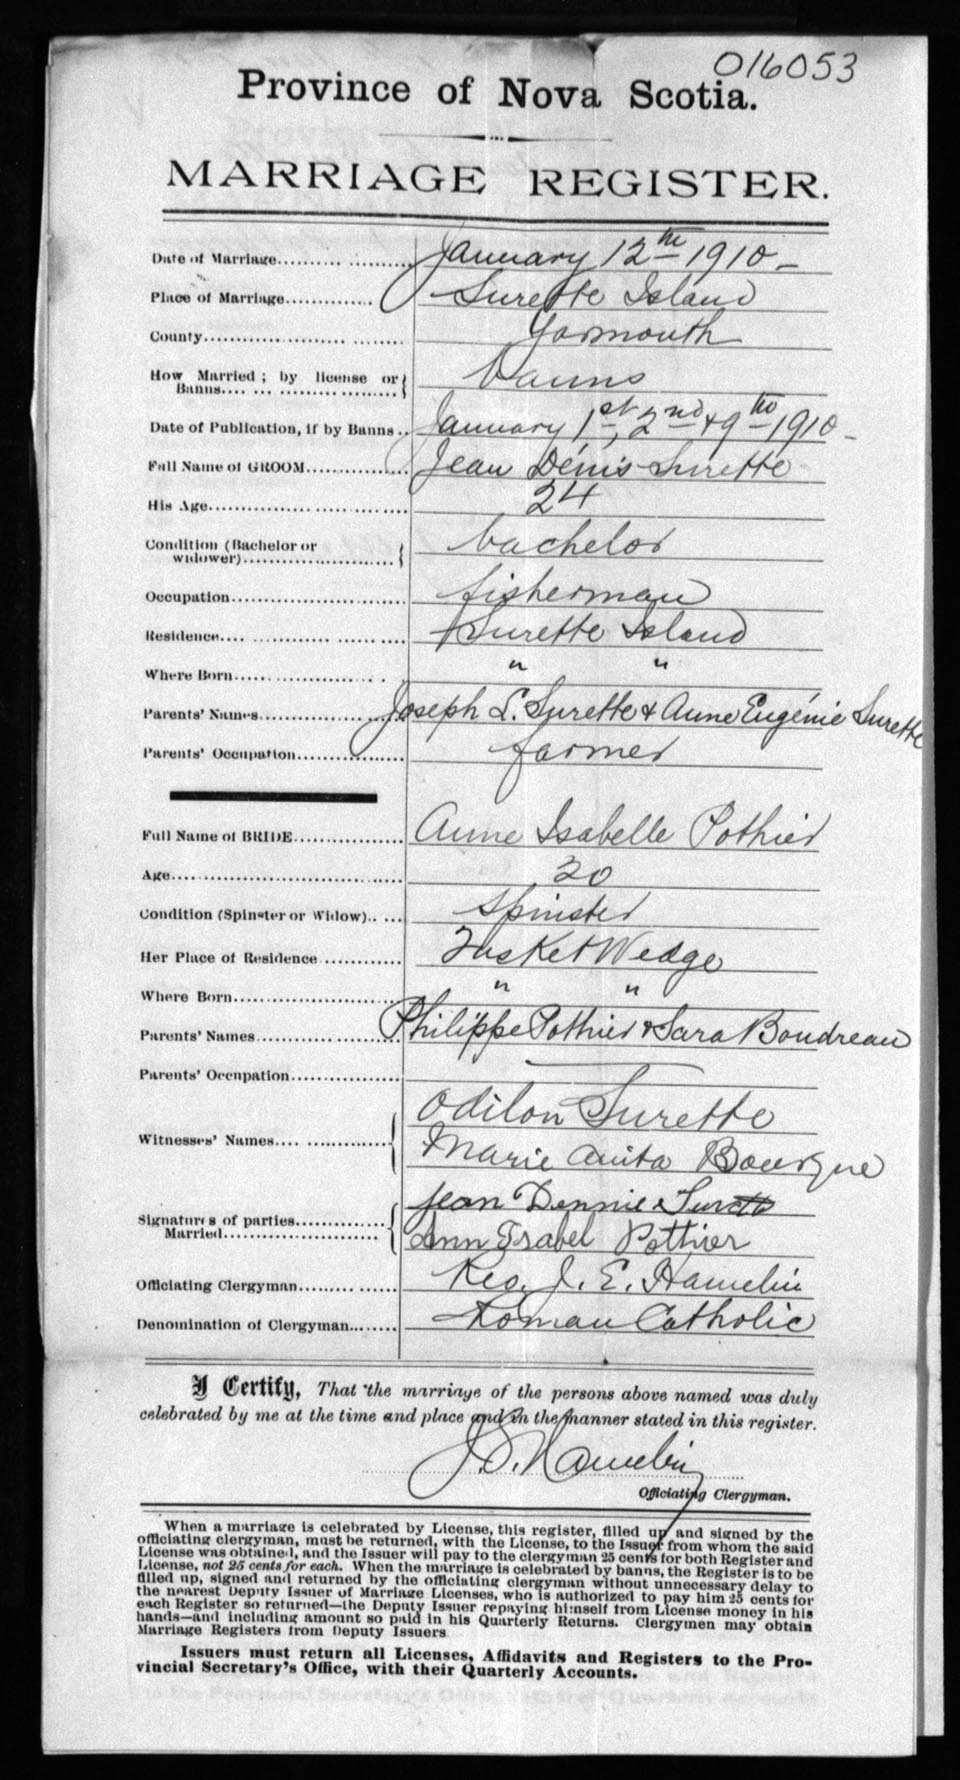 016053
Province of Nova Scotia.
MARRIAGE REGISTER.
Date of Marriage.................... January 12th 1910 –
Place of Marriage............. Surette Island
County.............................. Yarmouth
How Married; by license or Banns.... banns
Date of Publication, if by Banns.. January 1st, 2nd & 9th 1910 –
Full Name of GROOM............... Jean Dénis Surette
His Age............................. 24
Condition (Bachelor or widower)....................... bachelor
Occupation.......................... fisherman
Residence.... ............. Surette Island
Where Born....................... " "
Parents' Names..................... Joseph L. Surette & Anne Eugénie Surette
Parents' Occupation................. farmer
Full Name of BRIDE................. Anne Isabelle Pothier
Age................................... 20
Condition (Spinster or Widow).. .... spinster
Her Place of Residence............ Tusket Wedge
Where Born......................... " "
Parents' Names..................... Philippe Pothier & Sara Boudreau
Parents' Occupation................ —
Witnesses' Names.... ............. Odilon Surette
Marie Anita Bourque
Signatures of parties Married........................... Jean Dennie Surette
Ann Isabel Pothier
Officiating Clergyman......... ...... Rev. J. E. Hamelin
Denomination of Clergyman........ Roman Catholic
I Certify, That the marriage of the persons above named was duly
celebrated by me at the time and place and in the manner stated in this register.
J. E. Hamelin
Officiating Clergyman.
When a marriage is celebrated by License, this register, filled up and signed by the
officiating clergyman, must be returned, with the License, to the Issuer from whom the said
License was obtained, and the Issuer will pay to the clergyman 25 cents for both Register and
License, not 25 cents for each. When the marriage is celebrated by banns, the Register is to be
filled up, signed and returned by the officiating clergyman without unnecessary delay to
the nearest Deputy Issuer of Marriage Licenses, who is authorized to pay him 25 cents for
each Register so returned—the Deputy Issuer repaying himself from License money in his
hands—and including amount so paid in his Quarterly Returns. Clergymen may obtain
Marriage Registers from Deputy Issuers
Issuers must return all Licenses, Affidavits and Registers to the Pro-
vincial Secretary's Office, with their Quarterly Accounts.